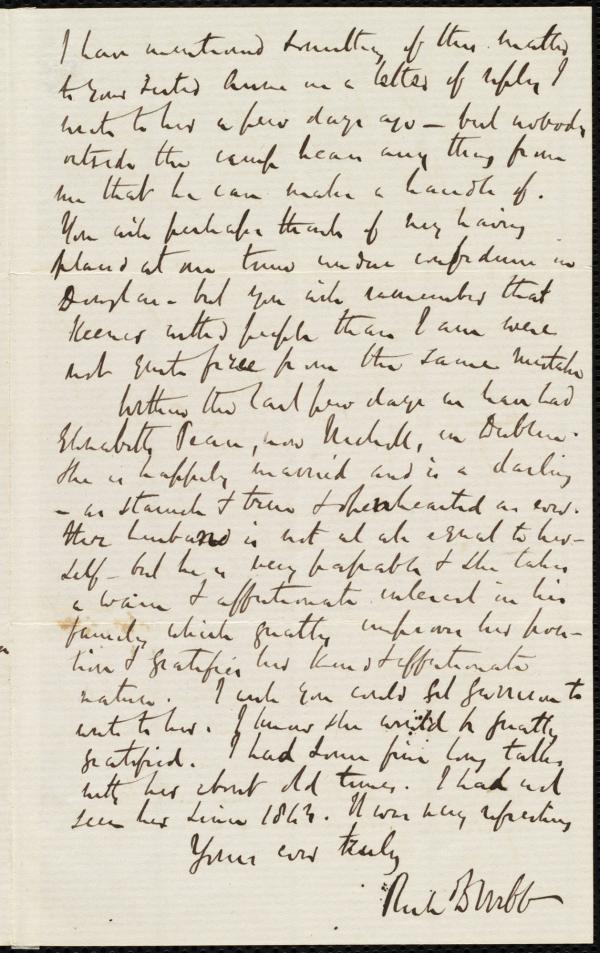 I have mentioned something of this matter
to your Sister Anne in a letter of reply I
wrote to her a few days ago – but nobody
outside the camp hears any thing from
me that he can make a handle of.
You will perhaps think of my having
placed at one time undue confidence in
Douglass – but you will remember that
keener witted people than I am were
not quite free from the same mistake
Within the last few days we have had
Elizabeth Pease, now Nichol, in Dublin.
She is happily married and is a darling
– as staunch & true & openhearted as ever.
Her husband is not at all equal to her-
self – but he is very & she takes
a warm & affectionate interest in his
family which greatly improves her posi-
tion & gratifies her kind & affectionate
nature. I wish you could get Garrison to
write to her. I know she would be greatly
gratified. I had some fine long talks
with her about old times. I had not
seen her since 1843. It was very refreshing
Yours ever truly
Rich D Webb